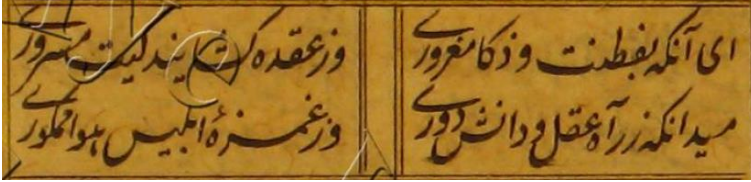 ای آنکه بفطنت و ذکا مغروری
وز عقده کشایندکیت مسروری
میدانکه ز راه عقل و دانش دوری
وز غمزهٔ ابلیس هوا مخموری